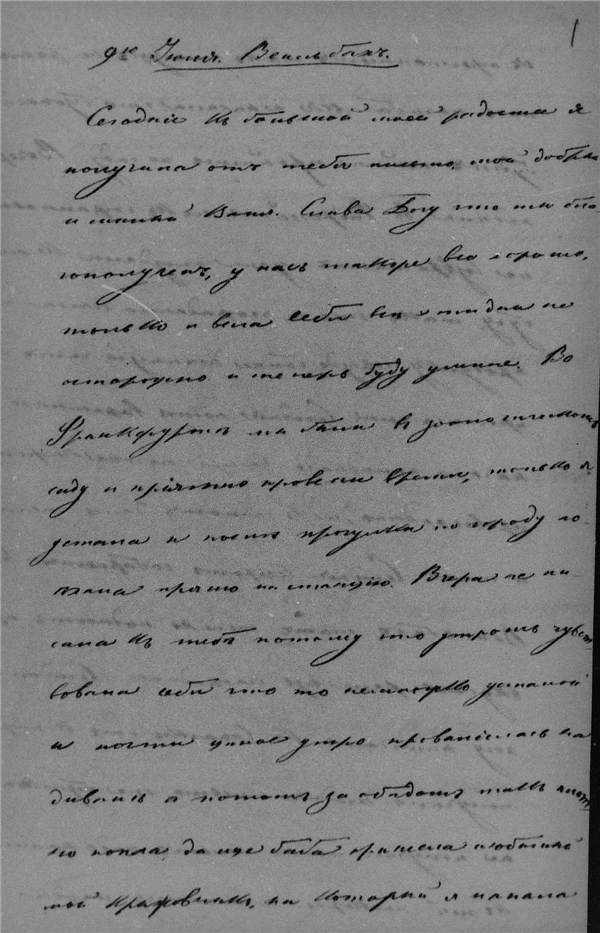 1
9го Июля. Вейльбахъ.
Сегодня къ большой моей радости я
получила отъ тебя письмо, мой добрый
и милый Ваня. Слава Богу что ты бла
гополученъ, у насъ также все хорошо,
только я вела себя эти дни не
осторожно и теперь буду умнее. Во
Франкфуртѣ мы были въ зоологическомъ
саду и прiятно провели время, только я
устала и послѣ прогулки по городу по
ѣхала прямо на станцiю. Вчера не пи
сала къ тебѣ потому что утромъ чувст
вовала себя что то немножко усталой
и почти цѣлое утро провалялась на
диванѣ а потомъ за обѣдомъ такъ
да еще баба принесла любимый
мой крыжовникъ, на который я напала